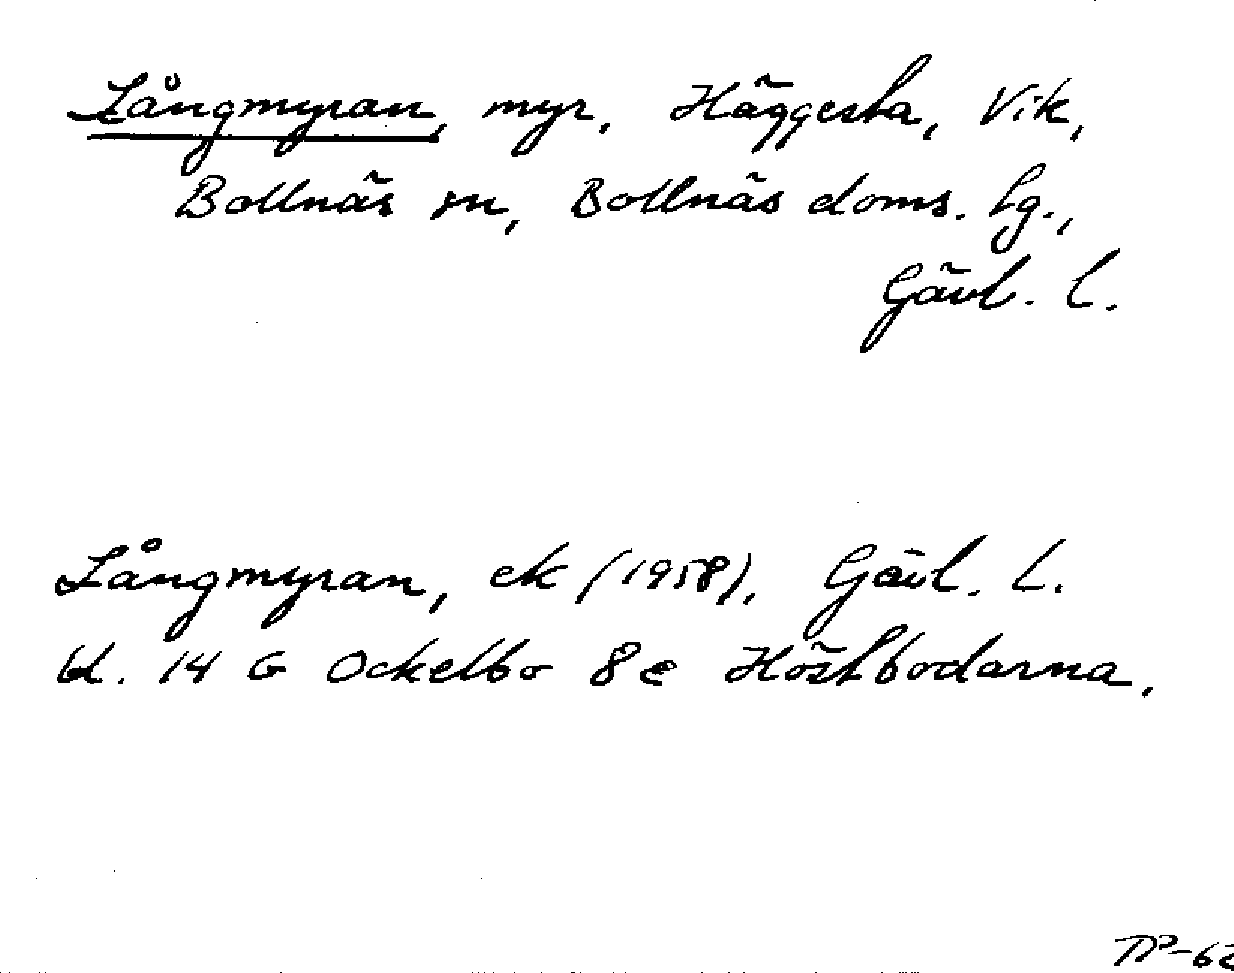 Långmyran, myr, Häggesta, Vik,
Bollnäs sn, Bollnäs doms. lg.,
Gävl. l.
Långmyran, ek (1958), Gävl. L.
bl. 14 G Ockelbo 8e Höstbodarna.